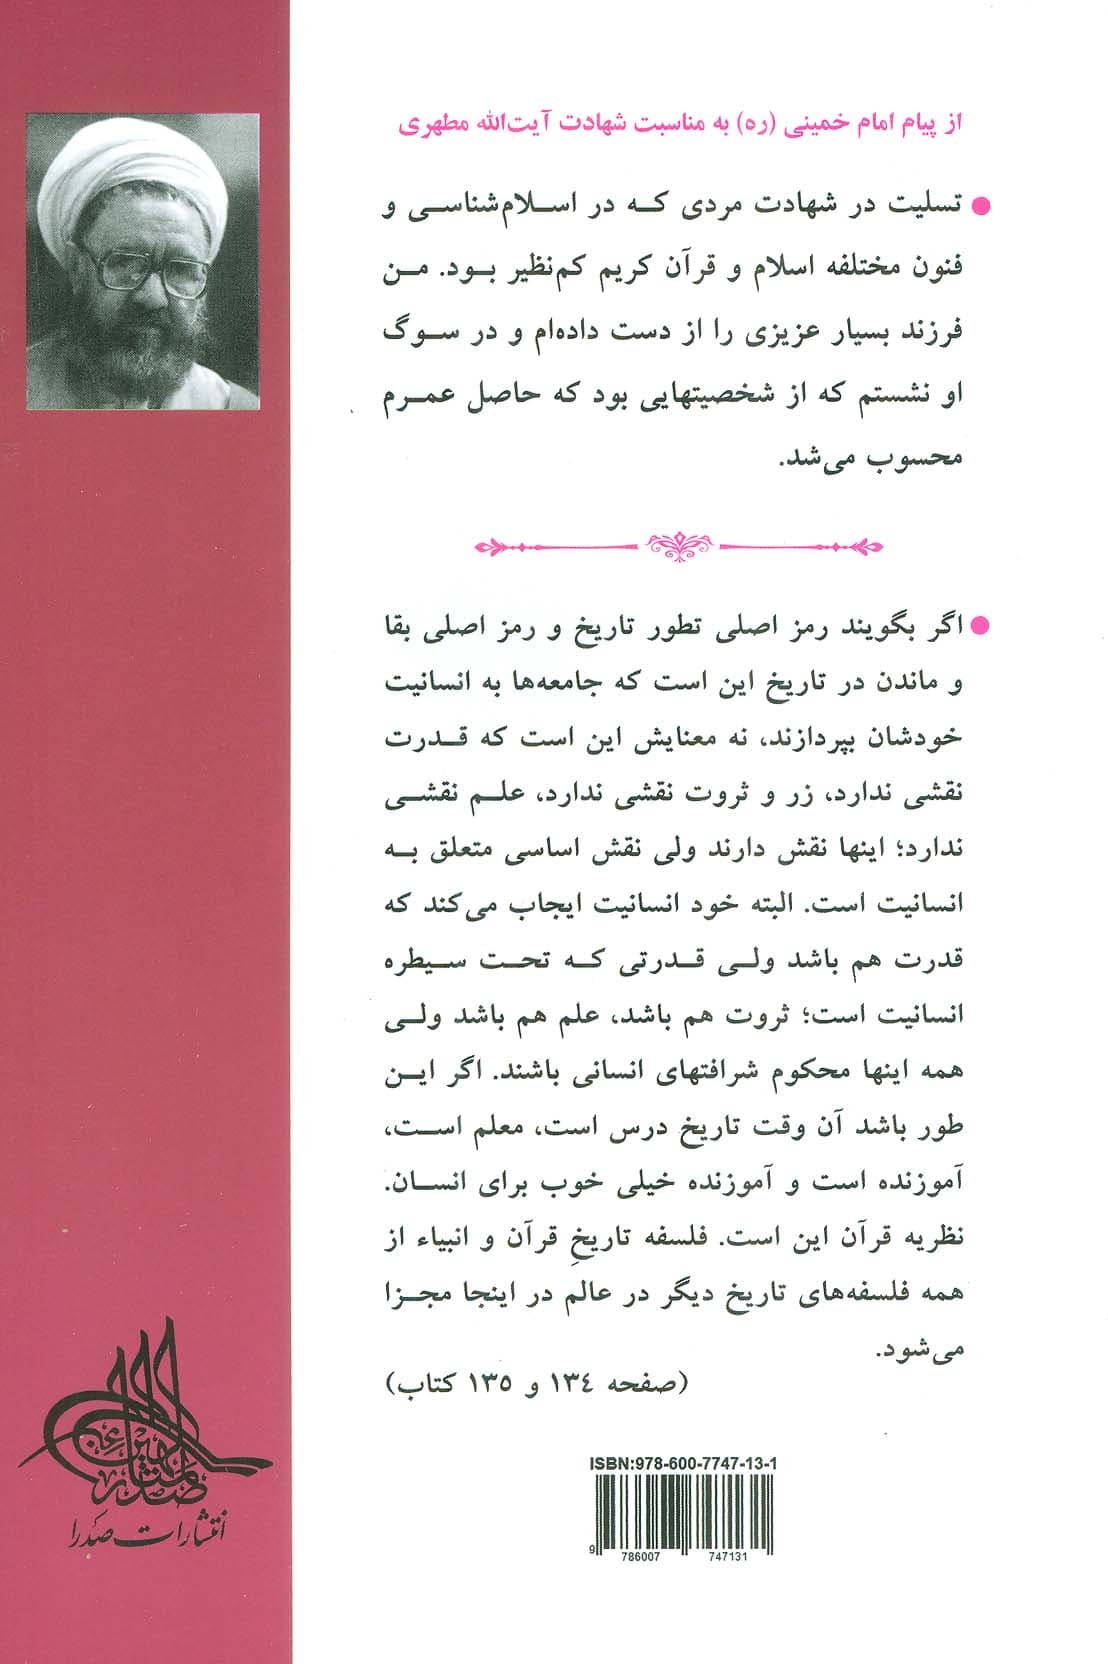 از پیام امام خمینی (ره) به مناسبت شهادت آیت‌الله مطهری
● تسلیت در شهادت مردی که در اسلام‌شناسی و
فنون مختلفه اسلام و قرآن کریم کم‌نظیر بود. من
فرزند بسیار عزیزی را از دست داده‌ام و در سوگ
او نشستم که از شخصیتهایی بود که حاصل عمرم
محسوب می‌شد.
● اگر بگویند رمز اصلی تطور تاریخ و رمز اصلی بقا
و ماندن در تاریخ این است که جامعه‌ها به انسانیت
خودشان بپردازند، نه معنایش این است که قدرت
نقشی ندارد، زر و ثروت نقشی ندارد، علم نقشی
ندارد؛ اینها نقش دارند ولی نقش اساسی متعلق به
انسانیت است. البته خود انسانیت ایجاب می‌کند که
قدرت هم باشد ولی قدرتی که تحت سیطره
انسانیت است؛ ثروت هم باشد، علم هم باشد ولی
همه اینها محکوم شرافتهای انسانی باشند. اگر این
طور باشد آن وقت تاریخ درس است، معلم است،
آموزنده است و آموزنده خیلی خوب برای انسان.
نظریه قرآن این است. فلسفه تاریخِ قرآن و انبیاء از
همه فلسفه‌های تاریخ دیگر در عالم در اینجا مجزا
می‌شود.
(صفحه ۱۳٤ و ۱۳۵ کتاب)
ISBN:978-600-7747-13-1
9 786007 747131
انتشارات صدرا